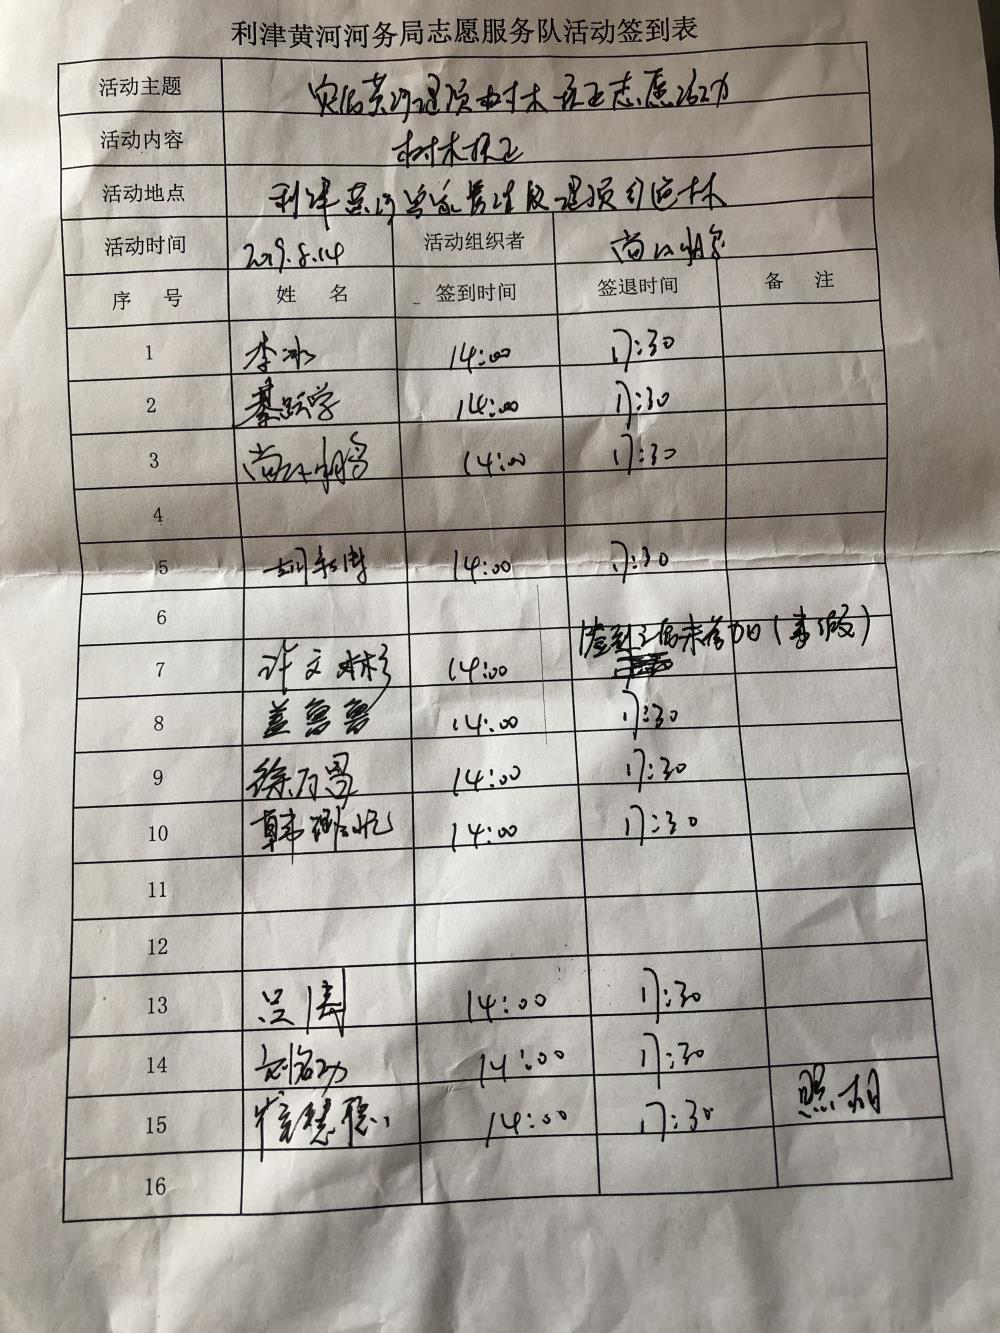 利津黄河河务局志愿服务队活动签到表
活动主题 灾后黄河堤顶树木扶正志愿活动
活动内容 树木扶正
活动地点 利津黄河 管理段堤顶行道林
活动时间 2019.8.14 活动组织者 尚
序号 姓名 签到时间 签退时间 备注
1 李冰 14:00 17:30
2 綦跃学 14:00 17:30
3 尚 14:00 17:30
4
5 胡 14:00 17:30
6
7 许文彬 14:00 签到后未参加(事假)
8 盖鲁鲁 14:00 17:30
9 徐 14:00 17:30
10 韩 14:00 17:30
11
12
13 吕涛 14:00 17:30
14 14:00 17:30
15 崔慧聪 14:00 17:30 照相
16